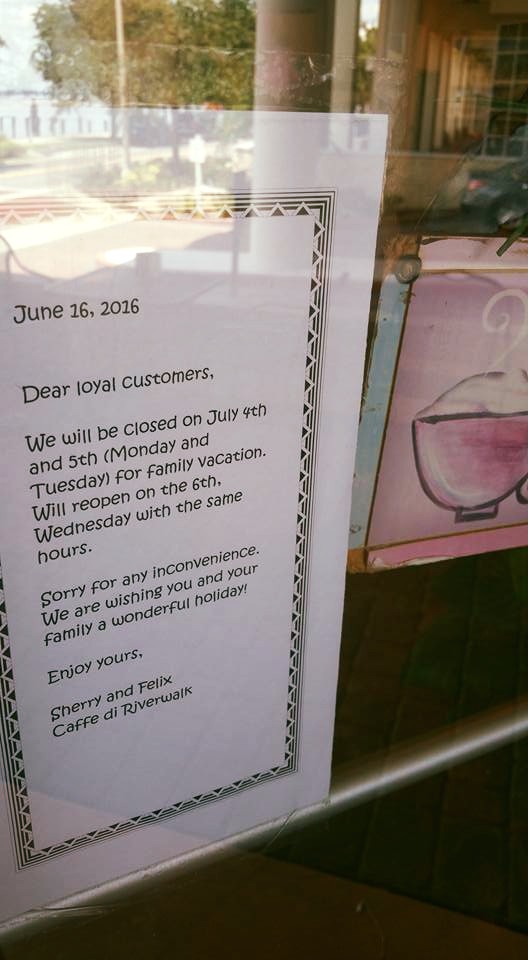 June 16, 2016
Dear loyal customers,
We will be closed on July 4th
and 5th (Monday and
Tuesday) for family vacation.
Will reopen on the 6th,
Wednesday with the same
hours.
Sorry for any inconvenience.
We are wishing you and your
family a wonderful holiday!
Enjoy yours,
Sherry and Felix
Caffe di Riverwalk